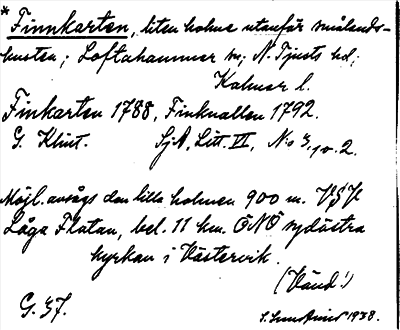 * Finnkarten, liten holme utanför smålands-
kusten; Loftahammar sn; N. Tjusts hd;
Kalmar l.
Finkarten 1788, Finknallen 1792.
G. Klint. SjA, Litt. VI, No 3, 10. 2.
Möjl. avsågs den lilla holmen 900 m. VSV
Låga Flatan, bel. 11 km. ONO sydöstra
kyrkan i Västervik.
(Vänd!)
G. 37. 1938.